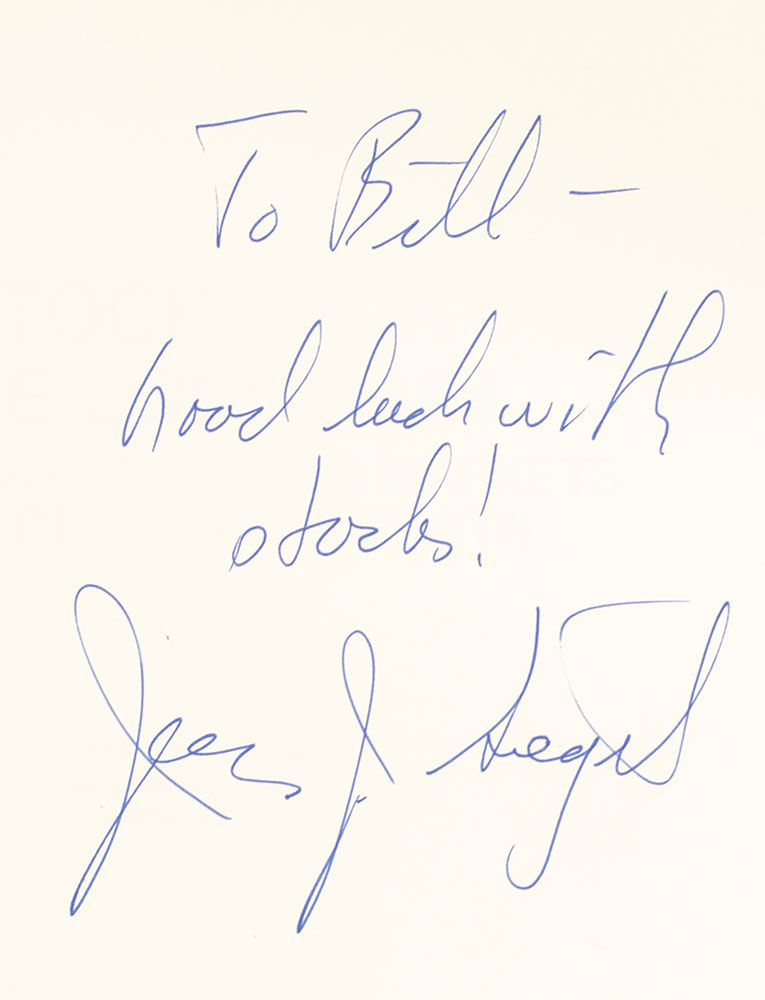 To Bill —
Good luck with
stocks!
Jeremy J. Siegel